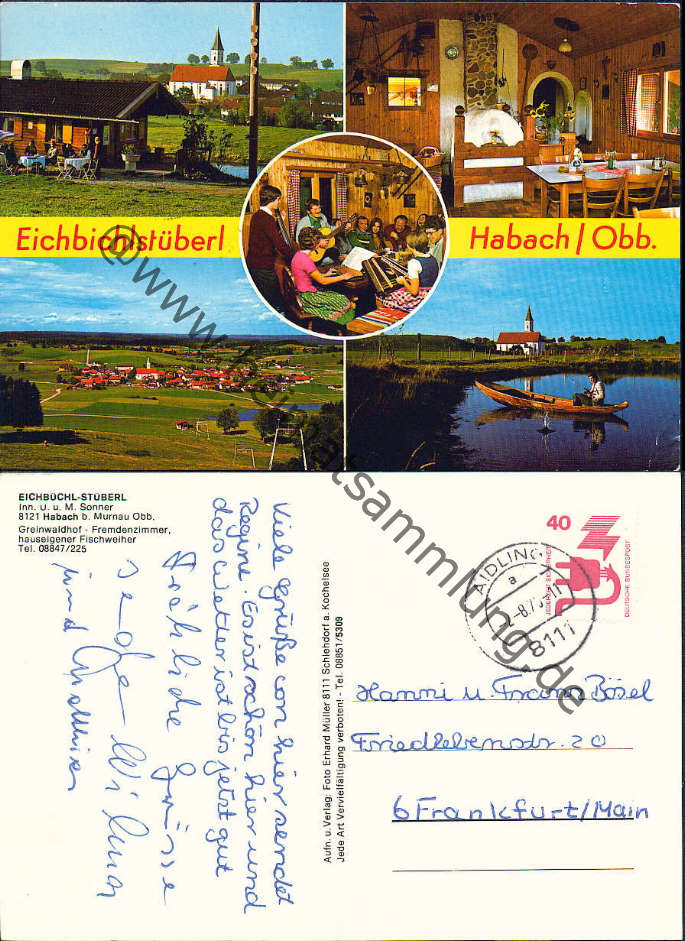 Eichbichlstüberl
Habach/Obb.
EICHBÜCHL-STÜBERL
Inh. U. u. M. Sonner
8121 Habach b. Murnau Obb.
Greinwaldhof - Fremdenzimmer,
hauseigener Fischweiher
Tel. 08847/225
Viele Grüße von hier sendet
Regine. Es ist schön hier und
das Wetter ist bis jetzt gut
Fröhliche Grüsse
und Matthias
Aufn. u. Verlag: Foto Erhard Müller 8111 Schlehdorf a. Kochelsee
Jede Art Vervielfältigung verboten! - Tel. 08851/5309
40
JEDERZEIT SICHERHEIT
DEUTSCHE BUNDESPOST
AIDLING
a
8111
Hanni u. Franz Bösel
Friedlebenstr. 20
6 Frankfurt/Main